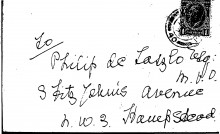 To
Philip de Laszlo Esq:
M.V.O
3 Fitz John's Avenue
N.W.3 Hampstead